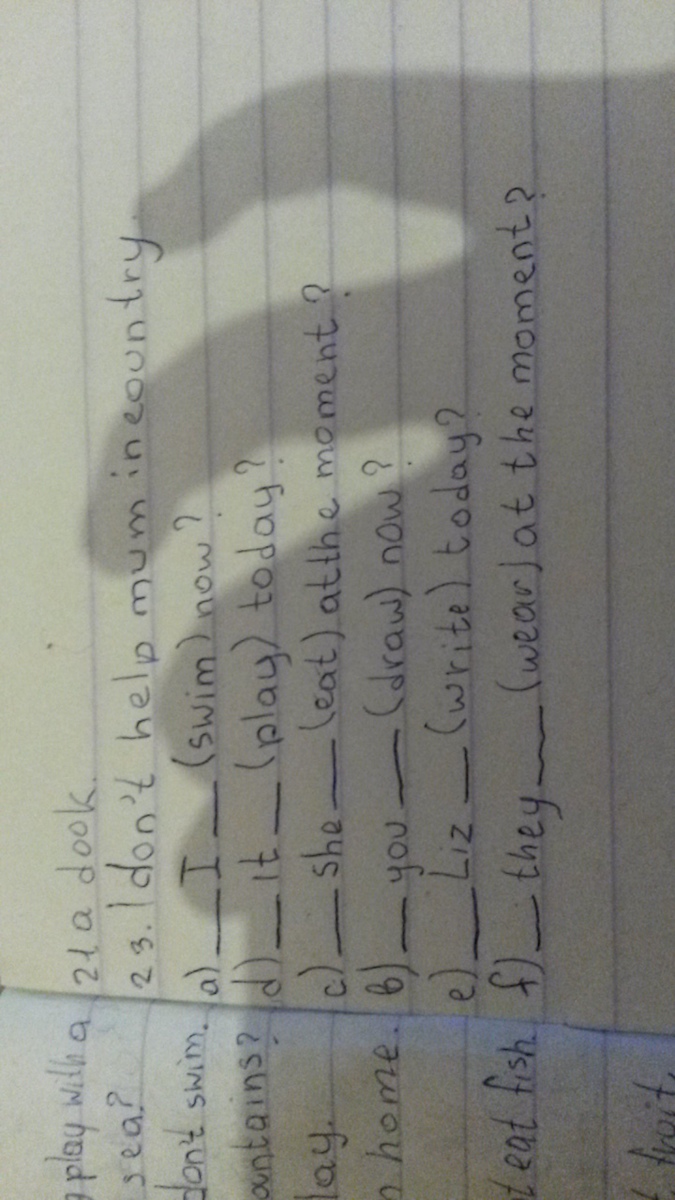 21 a dook.
23. I don't help mum in country.
a) ___ I ___ (swim) now?
d) ___ It ___ (play) today?
c) ___ she ___ (eat) at the moment?
b) ___ you ___ (draw) now?
e) ___ Liz ___ (write) today?
f) ___ they ___ (wear) at the moment?
play with a
sea?
don't swim.
lay.
home.
eat fish.